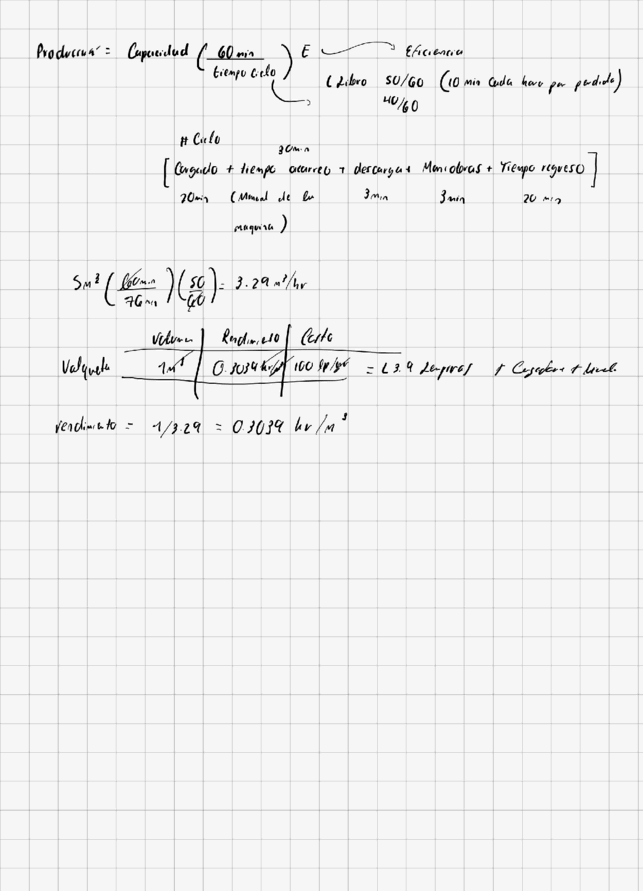 Produccion = Capacidad (60 min / tiempo ciclo) E → Eficiencia
(Libro 50/60 (10 min cada hora por perdida)
40/60
# Ciclo
30 min
[Cargado + tiempo acarreo + descarga + Maniobras + Tiempo regreso]
20 min (Manual de la 3 min 3 min 20 min
maquina)
5 m³ (60 min / 76 min) (50/60) = 3.29 m³/hr
Volumen Rendimiento Costo
Valqueta 1 m³ 0.3039 hr/m³ 100 = L 3.9 Lempiras +
rendimiento = 1/3.29 = 0.3039 hr/m³